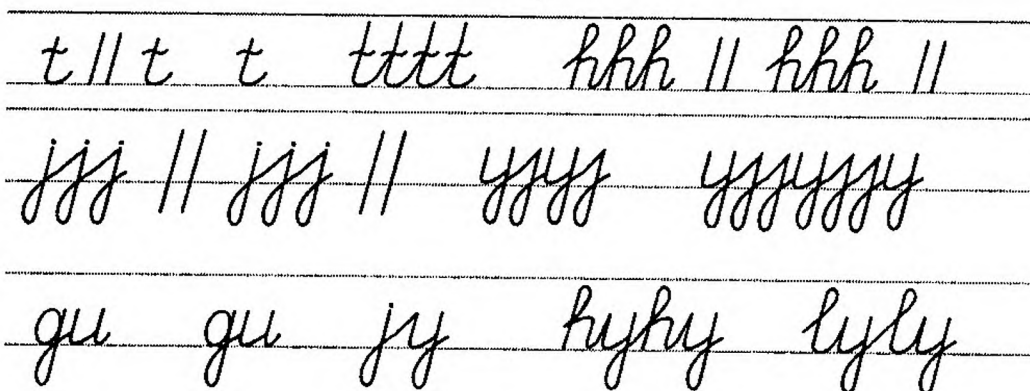 t || t t tttt hhh || hhh ||
jjj || jjj || yjyj yjjyjjy
gu gu jy hyhy lyly